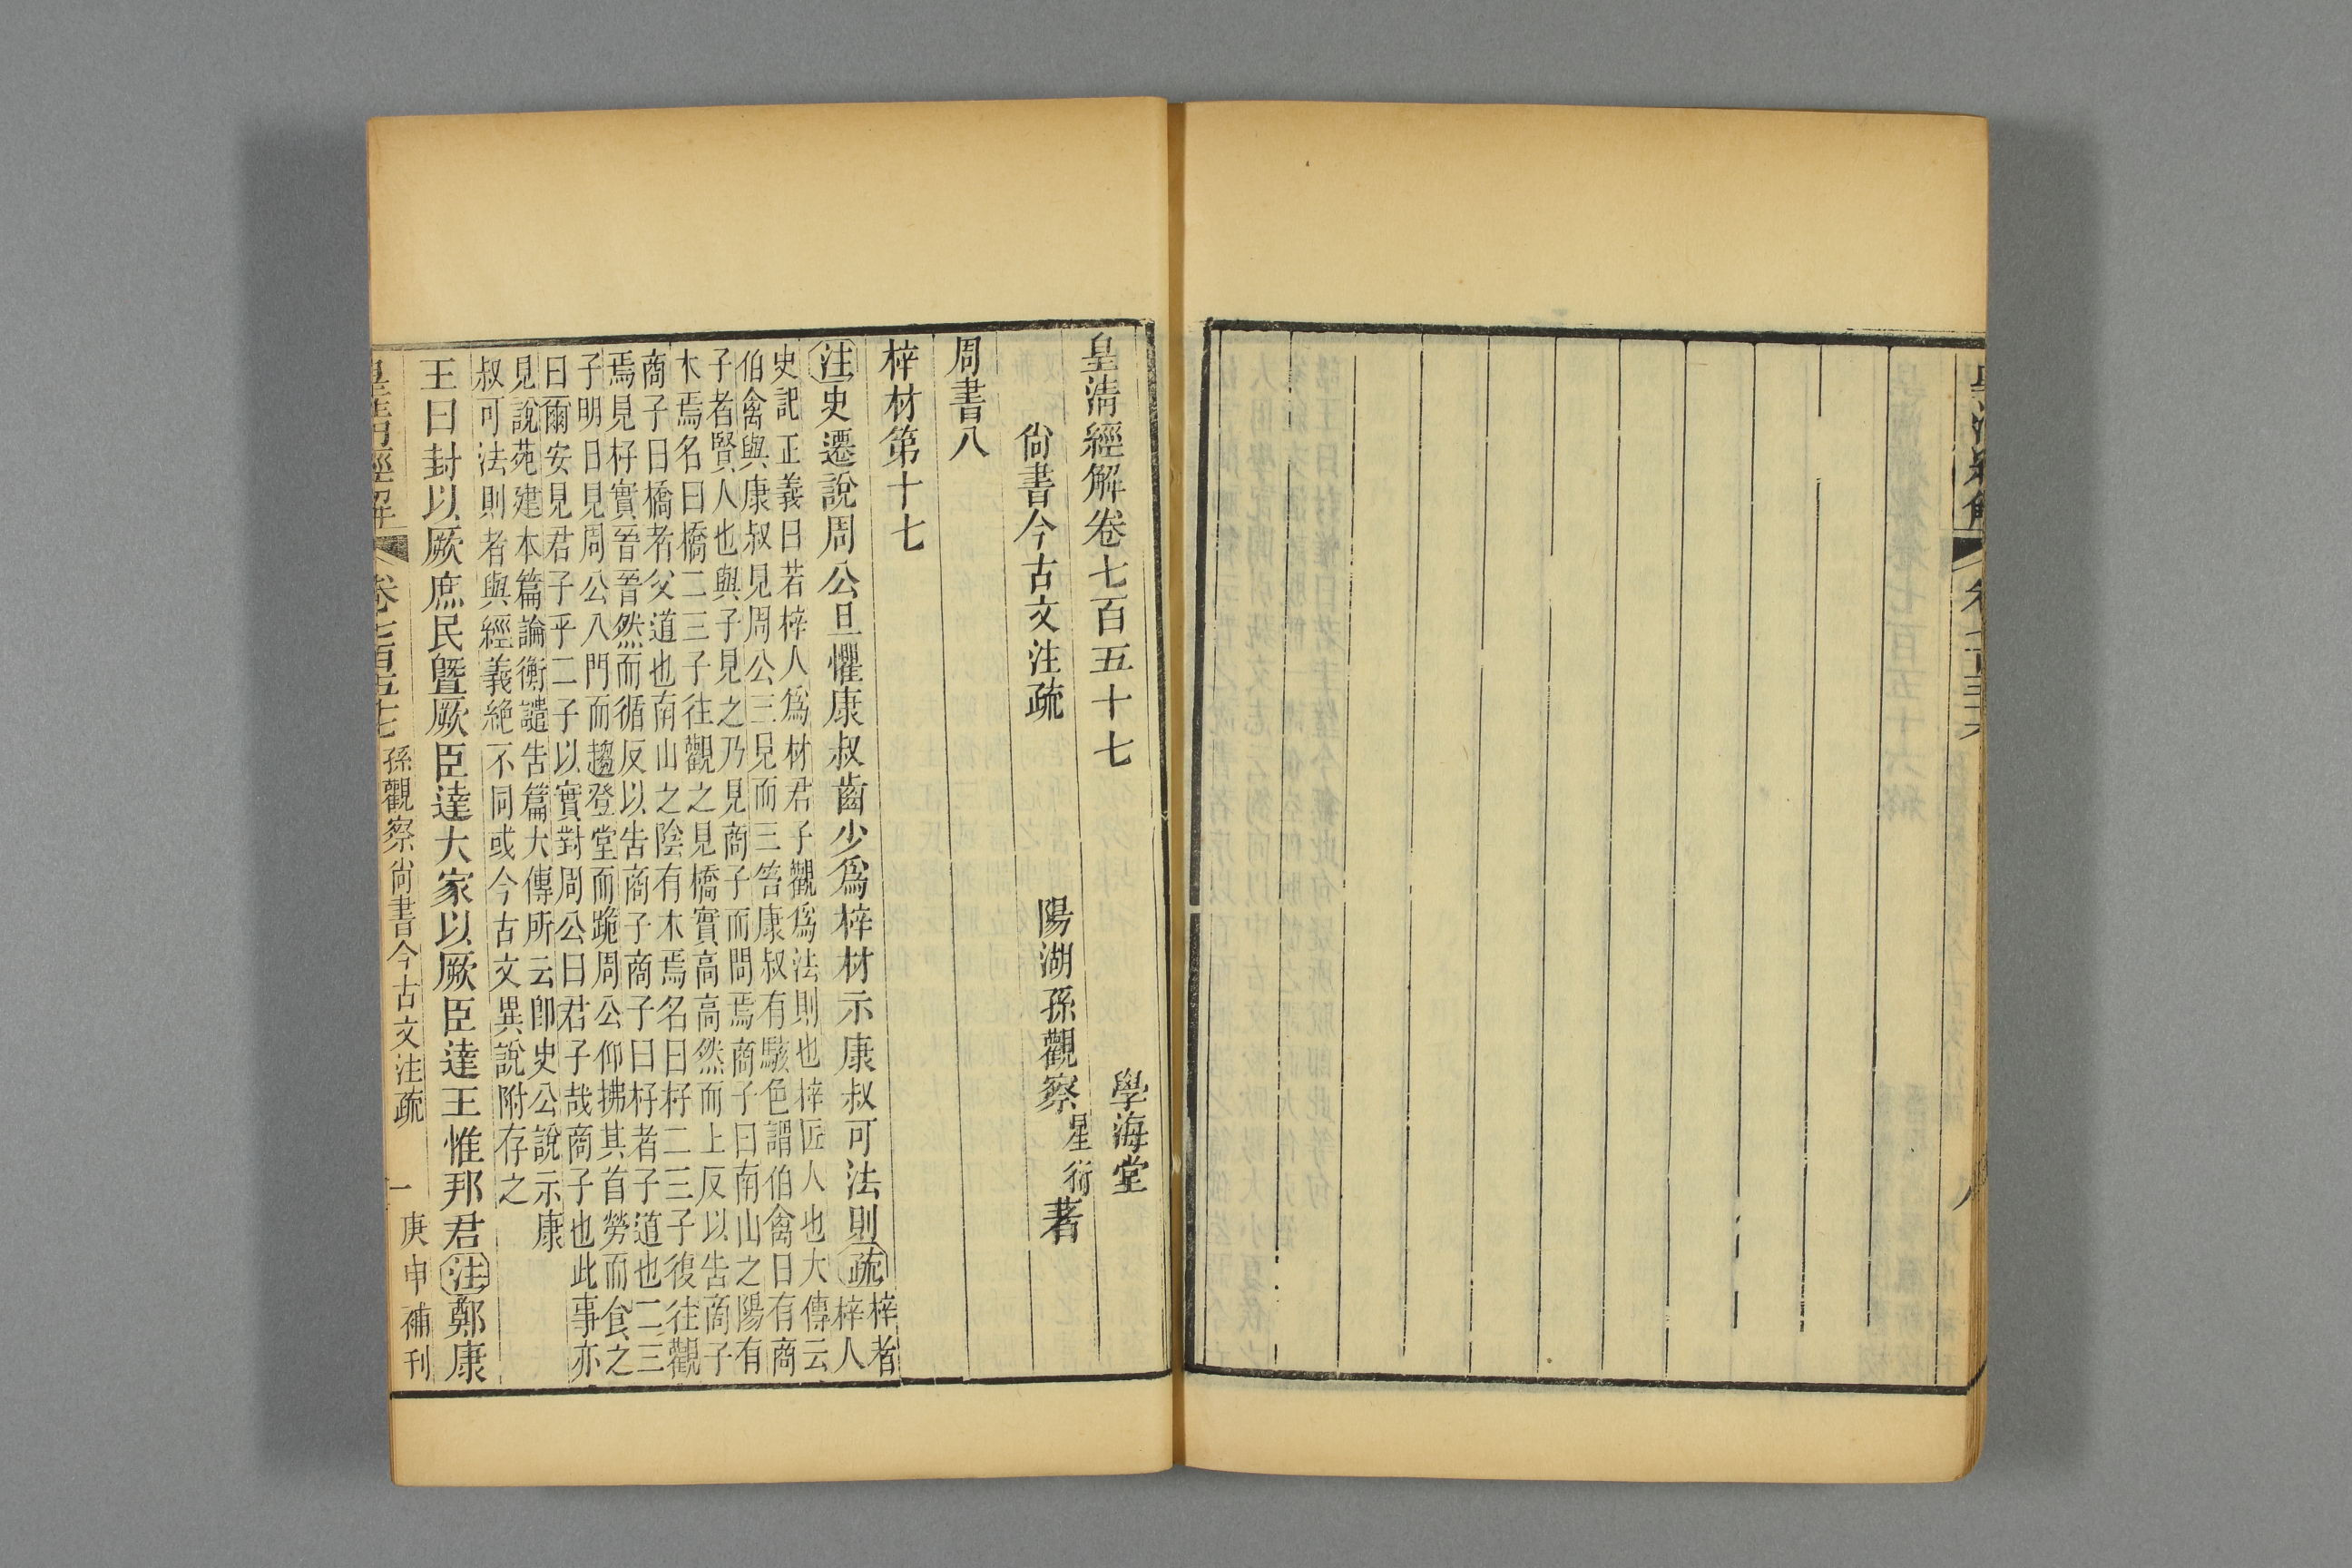 皇清經解卷七百五十七 學海堂
尙書今古文注疏 陽湖孫觀察星衍著
周書八
梓材第十七
注史遷說周公旦懼康叔齒少爲梓材示康叔可法則疏梓者梓人
史記正義曰若梓人爲材君子觀爲法則也梓匠人也大傳云
伯禽與康叔見周公三見而三笞康叔有駭色謂伯禽曰有商
子者賢人也與子見之乃見商子而問焉商子曰南山之陽有
木焉名曰橋二三子往觀之見橋實高高然而上反以告商子
商子曰橋者父道也南山之陰有木焉名曰杍二三子復往觀
焉見杍實晉晉然而循反以告商子商子曰杍者子道也二三
子明日見周公入門而趨登堂而跪周公仰拂其首勞而食之
曰爾安見君子乎二子以實對周公曰君子哉商子也此事亦
見說苑建本篇論衡譴告篇大傳所云卽史公說示康
叔可法則者與經義絶不同或今古文異說附存之
王曰封以厥庶民暨厥臣達大家以厥臣達王惟邦君注鄭康
皇清經解 卷七百五十七 孫觀察尙書今古文注疏 一 庚申補刊